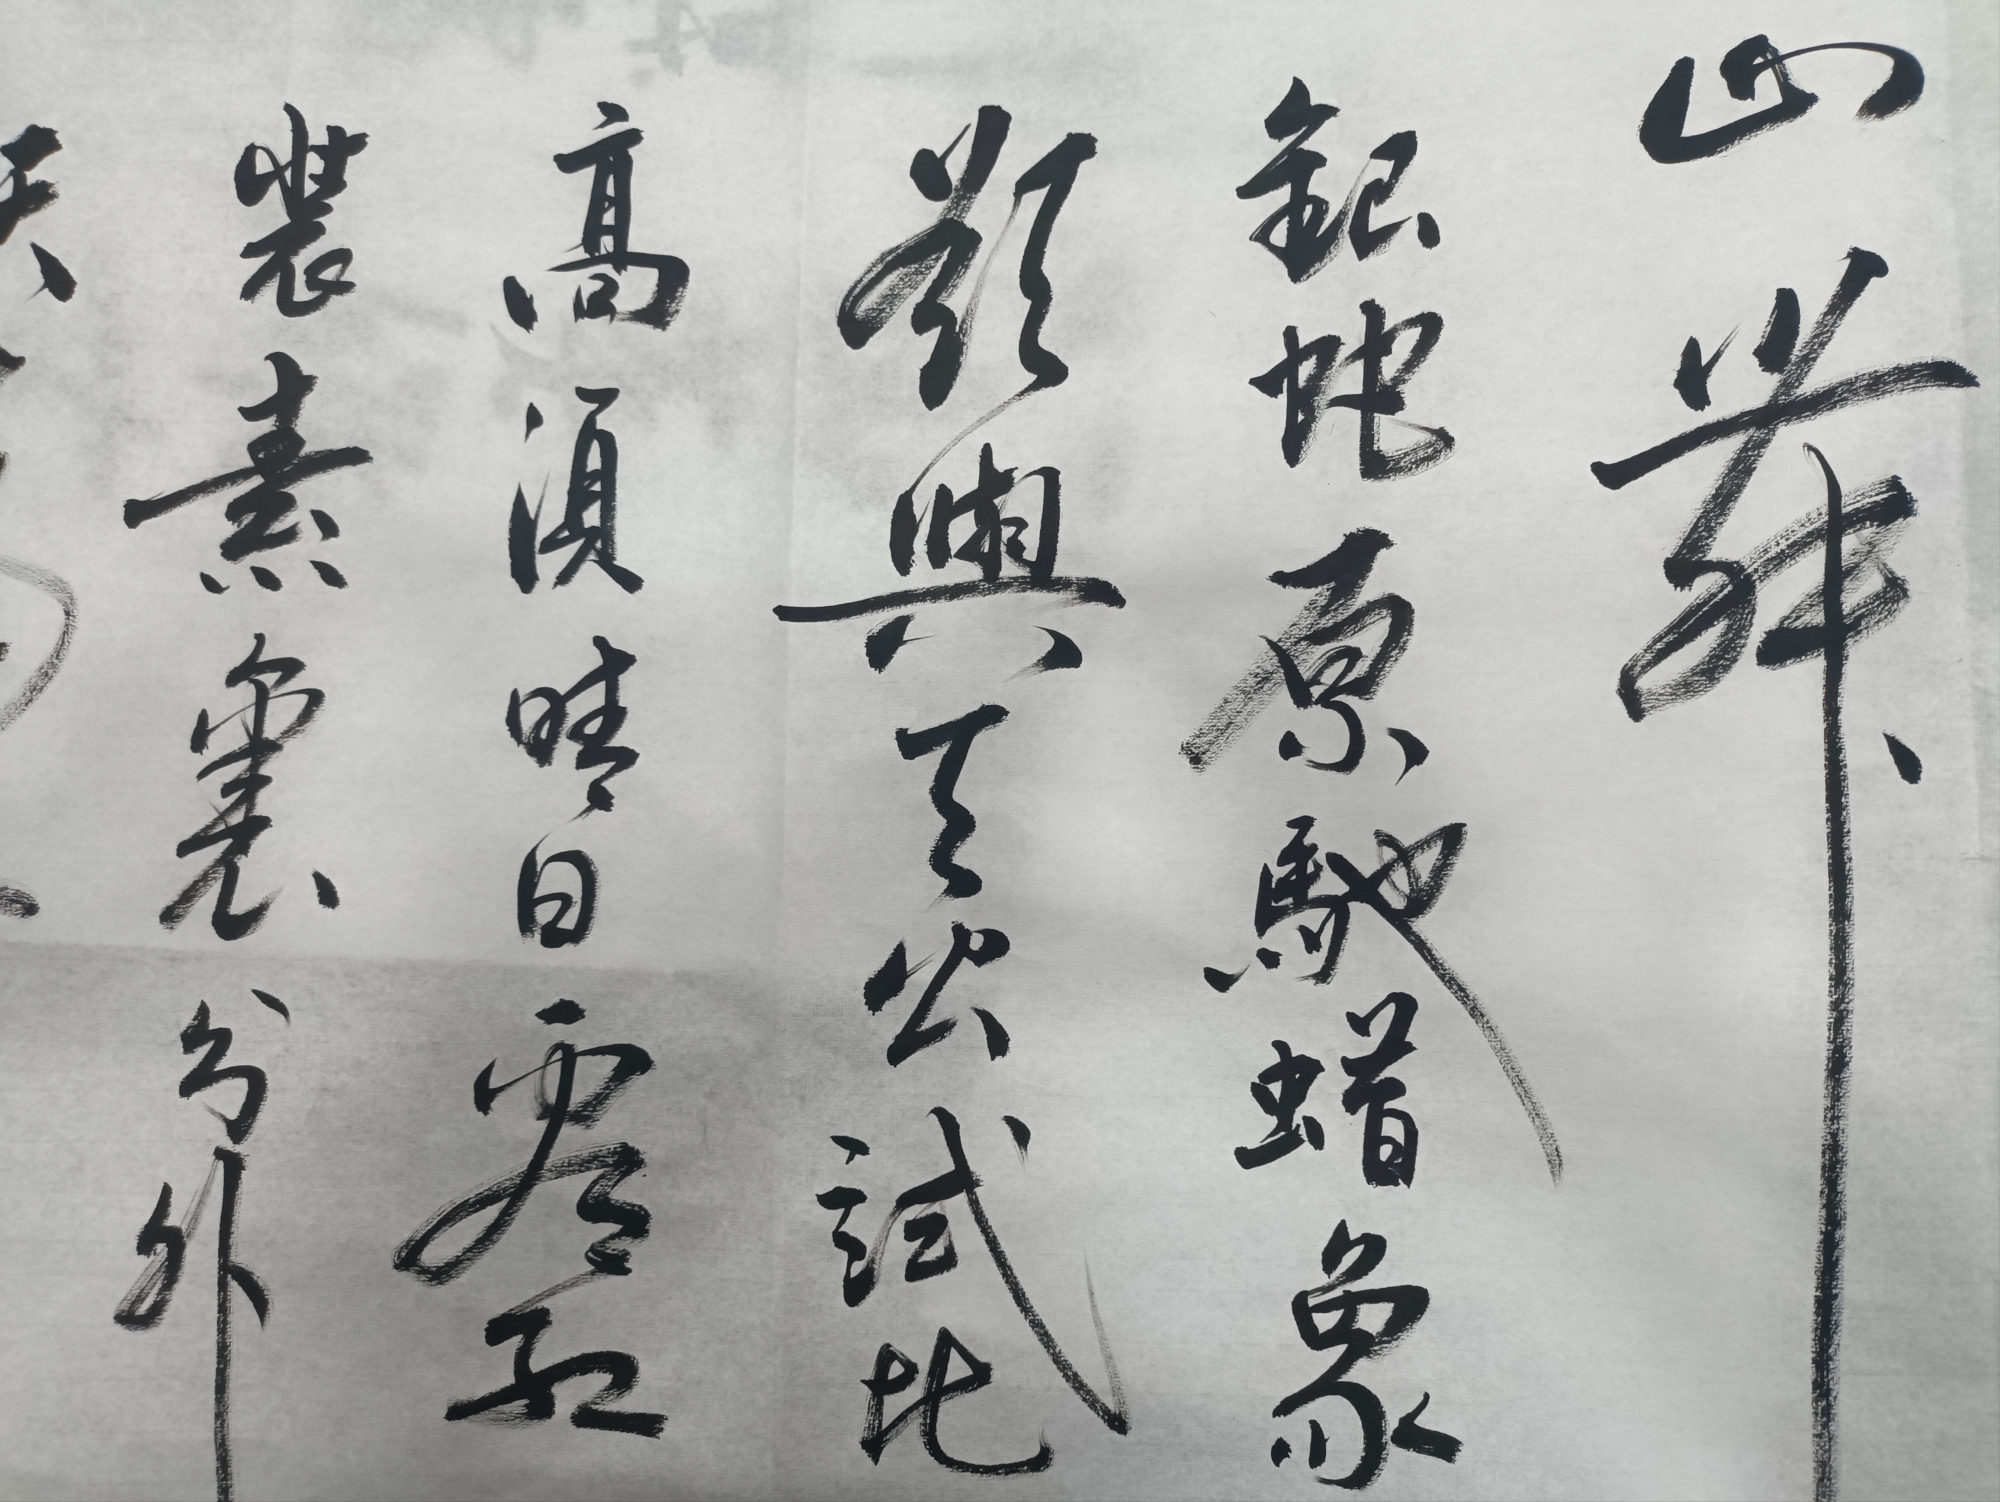 山舞
銀蛇原馳蜡象
欲與天公試比
高須晴日看紅
裝素裹分外
夭